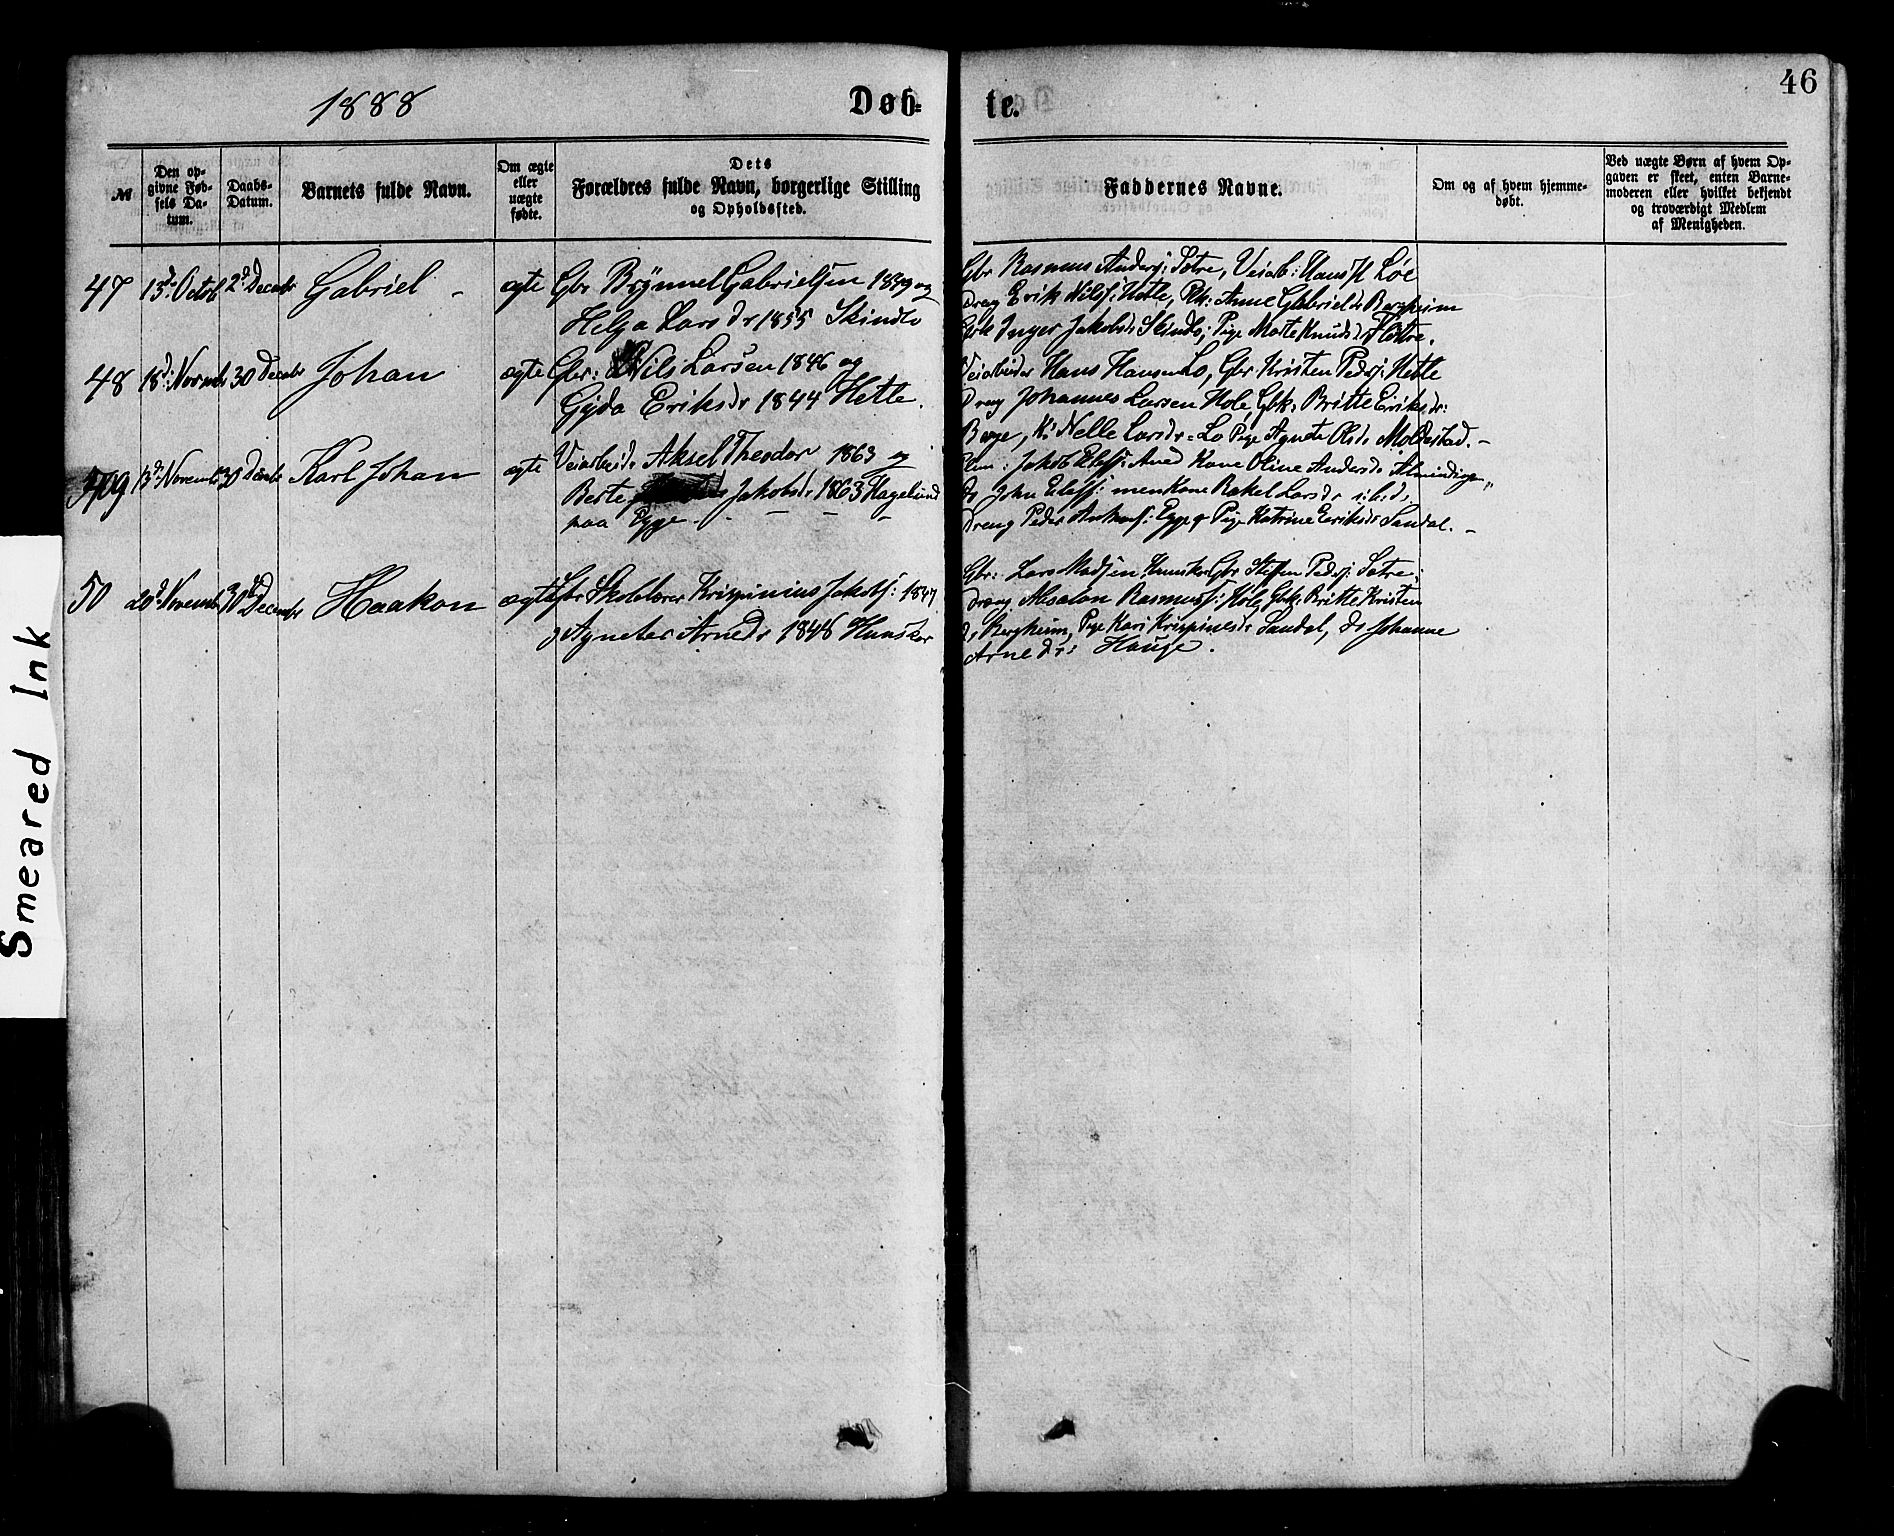 1888
Døb-
te.
46
№
Den op-
givne Fød-
sels Da-
tum.
Daabs-
Datum.
Barnets fulde Navn.
Om ægte
eller
uægte
fødte.
Dets
Forældres fulde Navn, borgerlige Stilling
og Opholdssted.
Faddernes Navne.
Om og af hvem hjemme-
døbt.
Ved uægte Børn af hvem Op-
gaven er skeet, enten Barne-
moderen eller hvilket bekjendt
og troværdigt Medlem
af Menigheden.
47 Octob 2d Decebr Gabriel - ægte Gbr Brynnel Gabrielsen og
Helga Lars dr 1855 Skindlo
Gbr Rasmus Anders: Sotre, Veiarb: Hans H Loe
Dreng Erik Nilss: Hetle, Anne Gabriels Bergheim
Gbk Inger Jakobsdr Skindlo, Pige Marte Knudsdr Flottre.
48 18d: Novembr 30 Decebr Johan ægte Gbr: Nils Larsen 1846 og
Gjida Eriksdr 1844 Hetle.
Veiarbeider Hans Hansen Lo, Gbr Kristen Peders: Hetle
Dreng Johannes Larsen Hole, Gbk: Britte Eriksdr:
Berge, K: Nelle Larsdr = Lo Pige Agnete Olsdr Moldestad. -
49 13d: Novemb 30 Decbr Karl Johan ægte Veiarbeidr Aksel Theodor 1863 og
Berte Jakobsdr 1863 Hagelund
paa Egge - - - - -
Jakob Elefs: Kone Oline Andersdr Almindingen,
Do John Elefs: men Kone Rakel Larsdr i: b: d:
Dreng Peder Egge & Pige Katrine Eeriksdr Sandal. -
50 20d: Novembr 30te Decembr Haakon ægte Skolelærer Krispinius Jakobs: 1847
og Agnete Arnedr 1848 Hunsker
Gbr: Lars Madsen Hunsker Gbr Steffen Peders: Sotre;
Dreng Absalon Rasmuss: Hole, Gbk: Britte Kristen
dr Bergheim, Pige Kari Krispinesdr Sandal, do Johanne
Arnedr: Hauge.
Smeared Ink